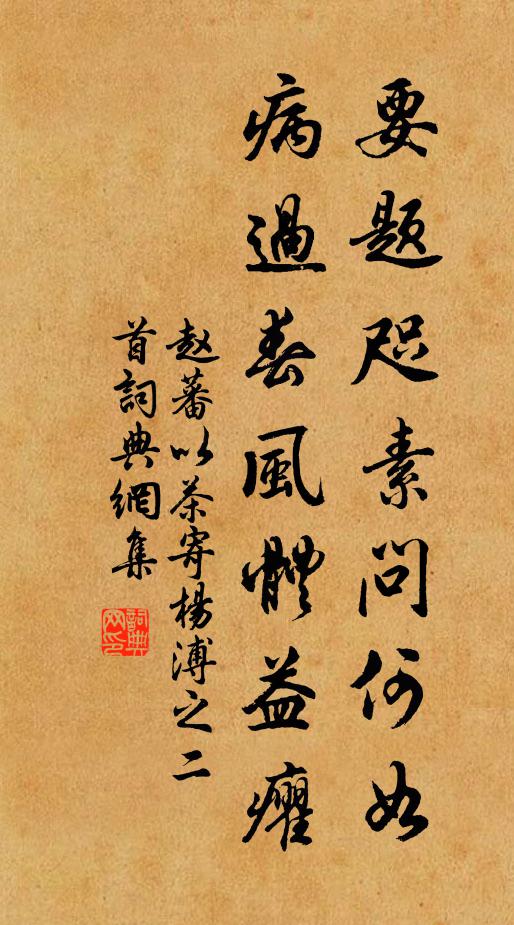 要題咫素問何如
病過春風體益癯
赵蕃以茶寄楊溥之二
首詞典網集
詞典
网印